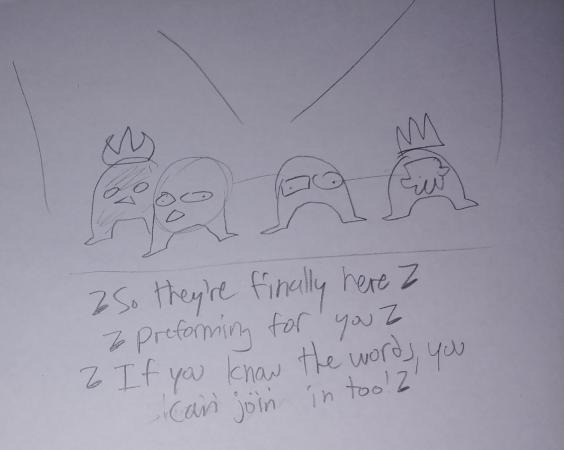 Z So they're finally here Z
Z preforming for you Z
Z If you know the words, you
can join in too! Z